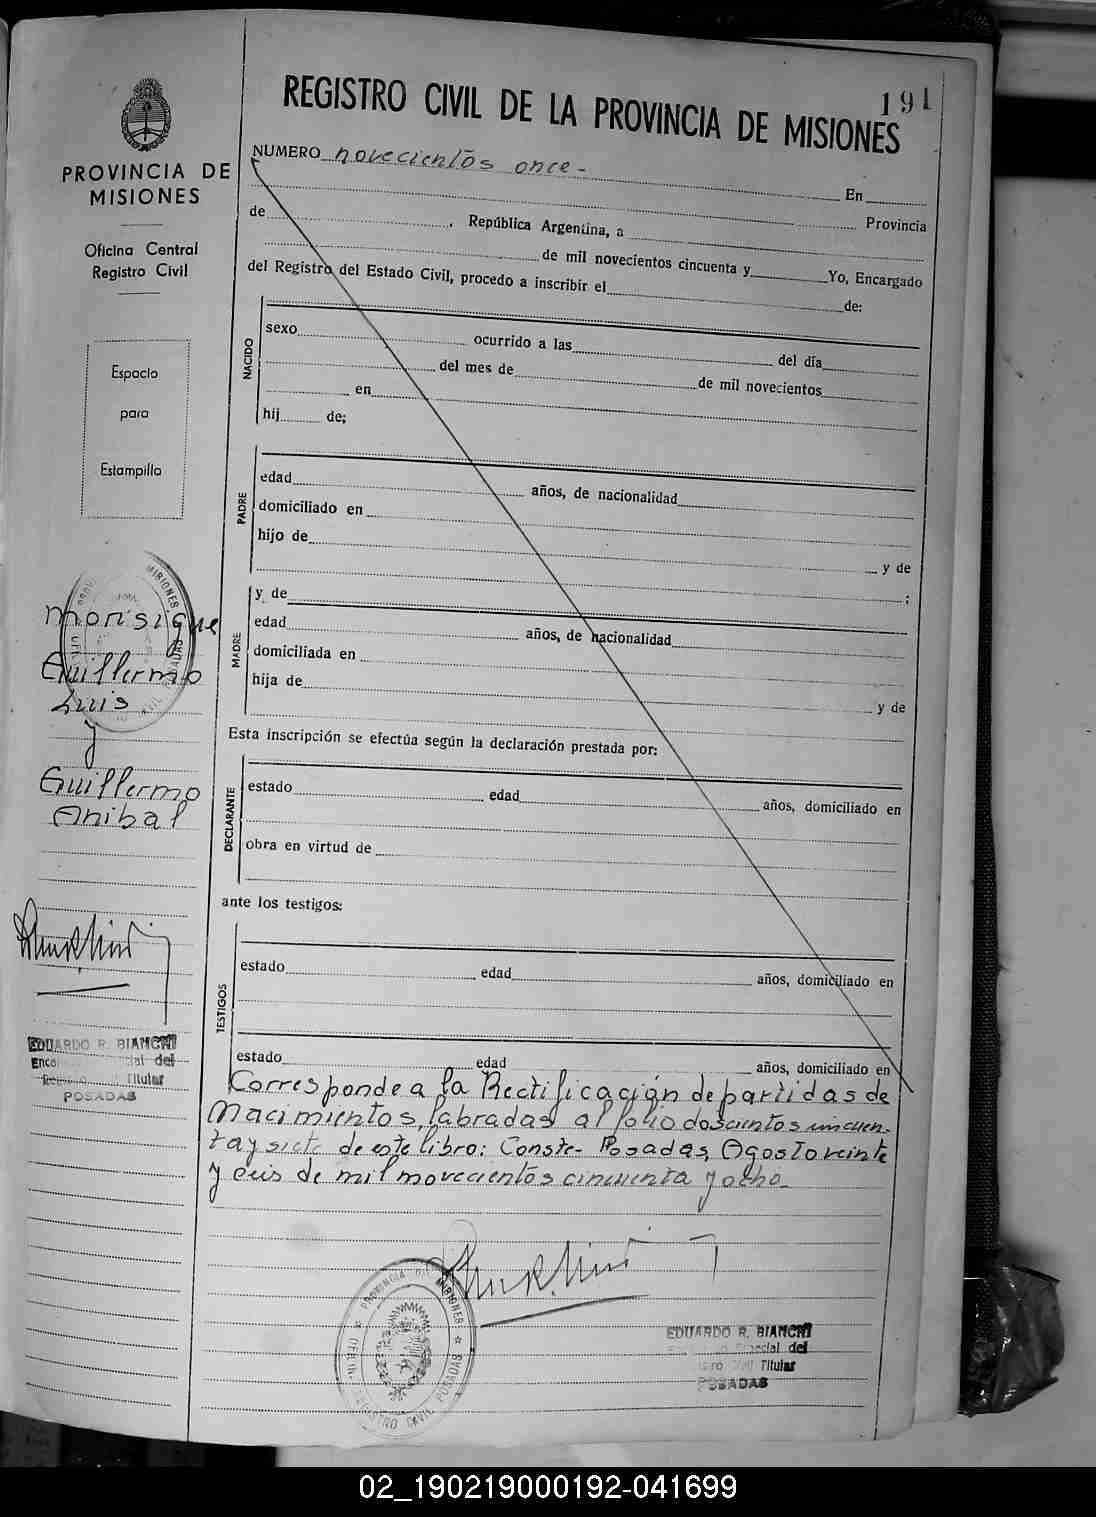 191
REGISTRO CIVIL DE LA PROVINCIA DE MISIONES
PROVINCIA DE
MISIONES
Oficina Central
Registro Civil
Espacio
para
Estampilla
Guillermo
Luis
y
Guillermo
Anibal
EDUARDO R. BIANCHI
Titular
POSADAS
NUMERO novecientos once -
En
Provincia
de , República Argentina, a
de mil novecientos cincuenta y Yo, Encargado
del Registro del Estado Civil, procedo a inscribir el de:
NACIDO
sexo ocurrido a las del día
del mes de de mil novecientos
en
hij de;
PADRE
edad años, de nacionalidad
domiciliado en
hijo de
y de
;
MADRE
y de
edad años, de nacionalidad
domiciliada en
hija de
y de
Esta inscripción se efectúa según la declaración prestada por:
DECLARANTE
estado edad años, domiciliado en
obra en virtud de
ante los testigos:
TESTIGOS
estado edad años, domiciliado en
estado edad años, domiciliado en
Corresponde a la Rectificación de partidas de
Nacimientos, labradas al folio doscientos cincuen-
ta y siete de este libro: Conste- Posadas, Agosto veinte
y seis de mil novecientos cincuenta y ocho-
PROVINCIA DE MISIONES
REGISTRO CIVIL POSADAS
EDUARDO R. BIANCHI
Especial del
Civil Titular
POSADAS
02_190219000192-041699